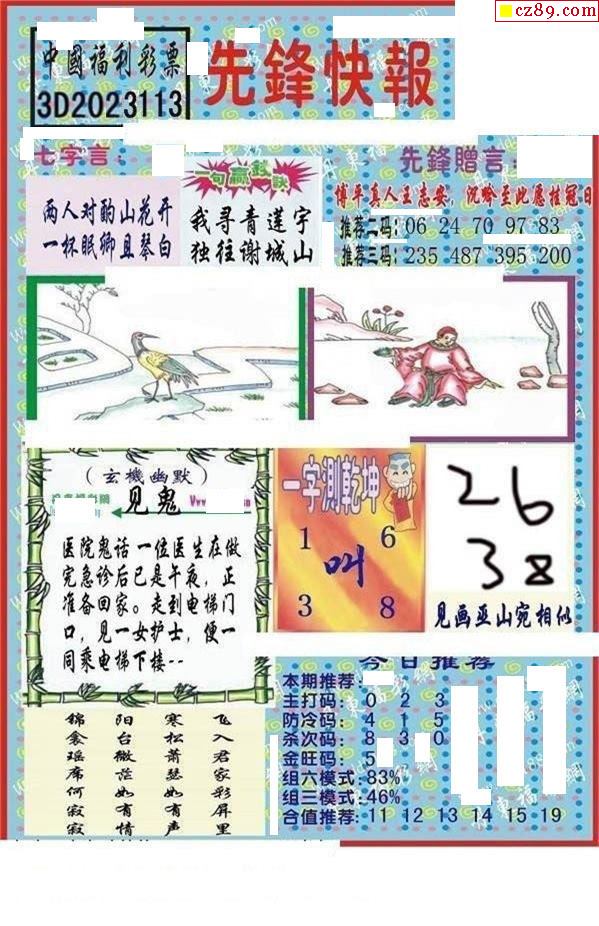 cz89.com
中國福利彩票
3D2023113
先鋒快報
七字言：
两人对酌山花开
一杯眠卿且琴白
一句赢錢訣
我寻青莲宇
独往谢城山
先鋒贈言：
博平真人王志安，沉吟至此愿挂冠日
推荐二码：06 24 70 97 83
推荐三码：235 487 395 200
（玄機幽默）
见鬼
医院鬼话 一位医生在做
完急诊后已是午夜，正
准备回家。走到电梯门
口，见一女护士，便一
同乘电梯下楼--
一字測乾坤
1 6
叫
3 8
26
38
见画亚山宛相似
今日推荐
本期推荐：
主打码：0 2 3
防冷码：4 1 5
杀次码：8 3 0
金旺码：5
组六模式：83%
组三模式：46%
合值推荐：11 12 13 14 15 19
飞入君家彩屏里
寒松萧瑟如有声
阳台微茫如有情
锦衾瑶席何寂寂